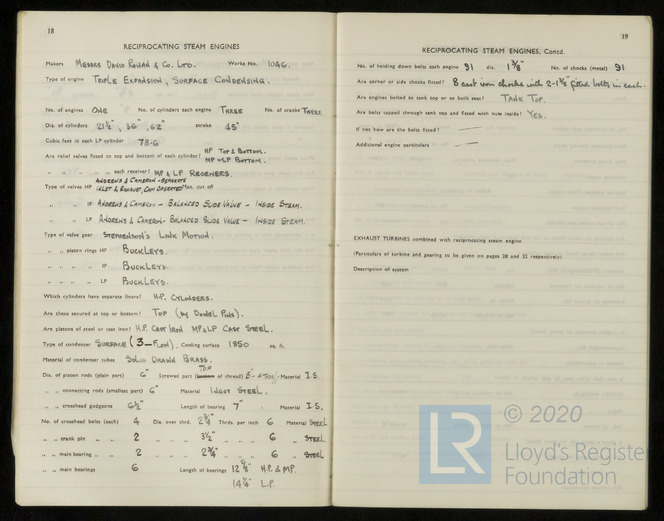 18
RECIPROCATING STEAM ENGINES
Makers MESSRS DAVID ROWAN & CO. LTD. Works No. 1046.
Type of engine TRIPLE EXPANSION, SURFACE CONDENSING.
No. of engines ONE No. of cylinders each engine THREE No. of cranks THREE
Dia. of cylinders 21½", 36", 62" stroke 45"
Cubic feet in each LP cylinder 78.6
Are relief valves fitted to top and bottom of each cylinder? HP TOP & BOTTOM. MP & LP BOTTOM.
" " " each receiver? MP & LP RECEIVERS.
Type of valves HP ANDREWS & CAMERON - SEPARATE INLET & EXHAUST, CAM OPERATED Max. cut off
" " IP ANDREWS & CAMERON - BALANCED SLIDE VALVE - INSIDE STEAM.
" " LP ANDREWS & CAMERON - BALANCED SLIDE VALVE - INSIDE STEAM.
Type of valve gear STEPHENSON'S LINK MOTION.
" " piston rings HP BUCKLEYS.
" " " " IP BUCKLEYS.
" " " " LP BUCKLEYS.
Which cylinders have separate liners? H.P. CYLINDERS.
Are these secured at top or bottom? TOP (by DOWEL PINS).
Are pistons of steel or cast iron? H.P. CAST IRON MP & LP CAST STEEL.
Type of condenser SURFACE (3-FLOW). Cooling surface 1850 sq. ft.
Material of condenser tubes SOLID DRAWN BRASS.
Dia. of piston rods (plain part) 6" Screwed part (bottom of thread) TOP Material I.S.
" " connecting rods (smallest part) 6" Material INGOT STEEL.
" " crosshead gudgeons 6½" Length of bearing 7" Material I.S.
No. of crosshead bolts (each) 4 Dia. over thrd. 2¾" Thrds. per inch 6 Material STEEL
" " crank pin " " 2 " " 3½" " " " 6 " STEEL
" " main bearing " " 2 " " 2¾" " " " 6 " STEEL.
" " main bearings 6 Length of bearings H.P. & MP.
14¼" L.P.
19
RECIPROCATING STEAM ENGINES, Contd.
No. of holding down bolts each engine 91 dia. 1⅜" No. of chocks (metal) 91
Are corner or side chocks fitted? 8 cast iron chocks with fitted bolts in each.
Are engines bolted to tank top or to built seat? TANK TOP.
Are bolts tapped through tank top and fitted with nuts inside? YES.
If not how are the bolts fitted?
Additional engine particulars
EXHAUST TURBINES combined with reciprocating steam engine
(Particulars of turbine and gearing to be given on pages 28 and 32 respectively)
Description of system
LR
© 2020
Lloyd's Register
Foundation